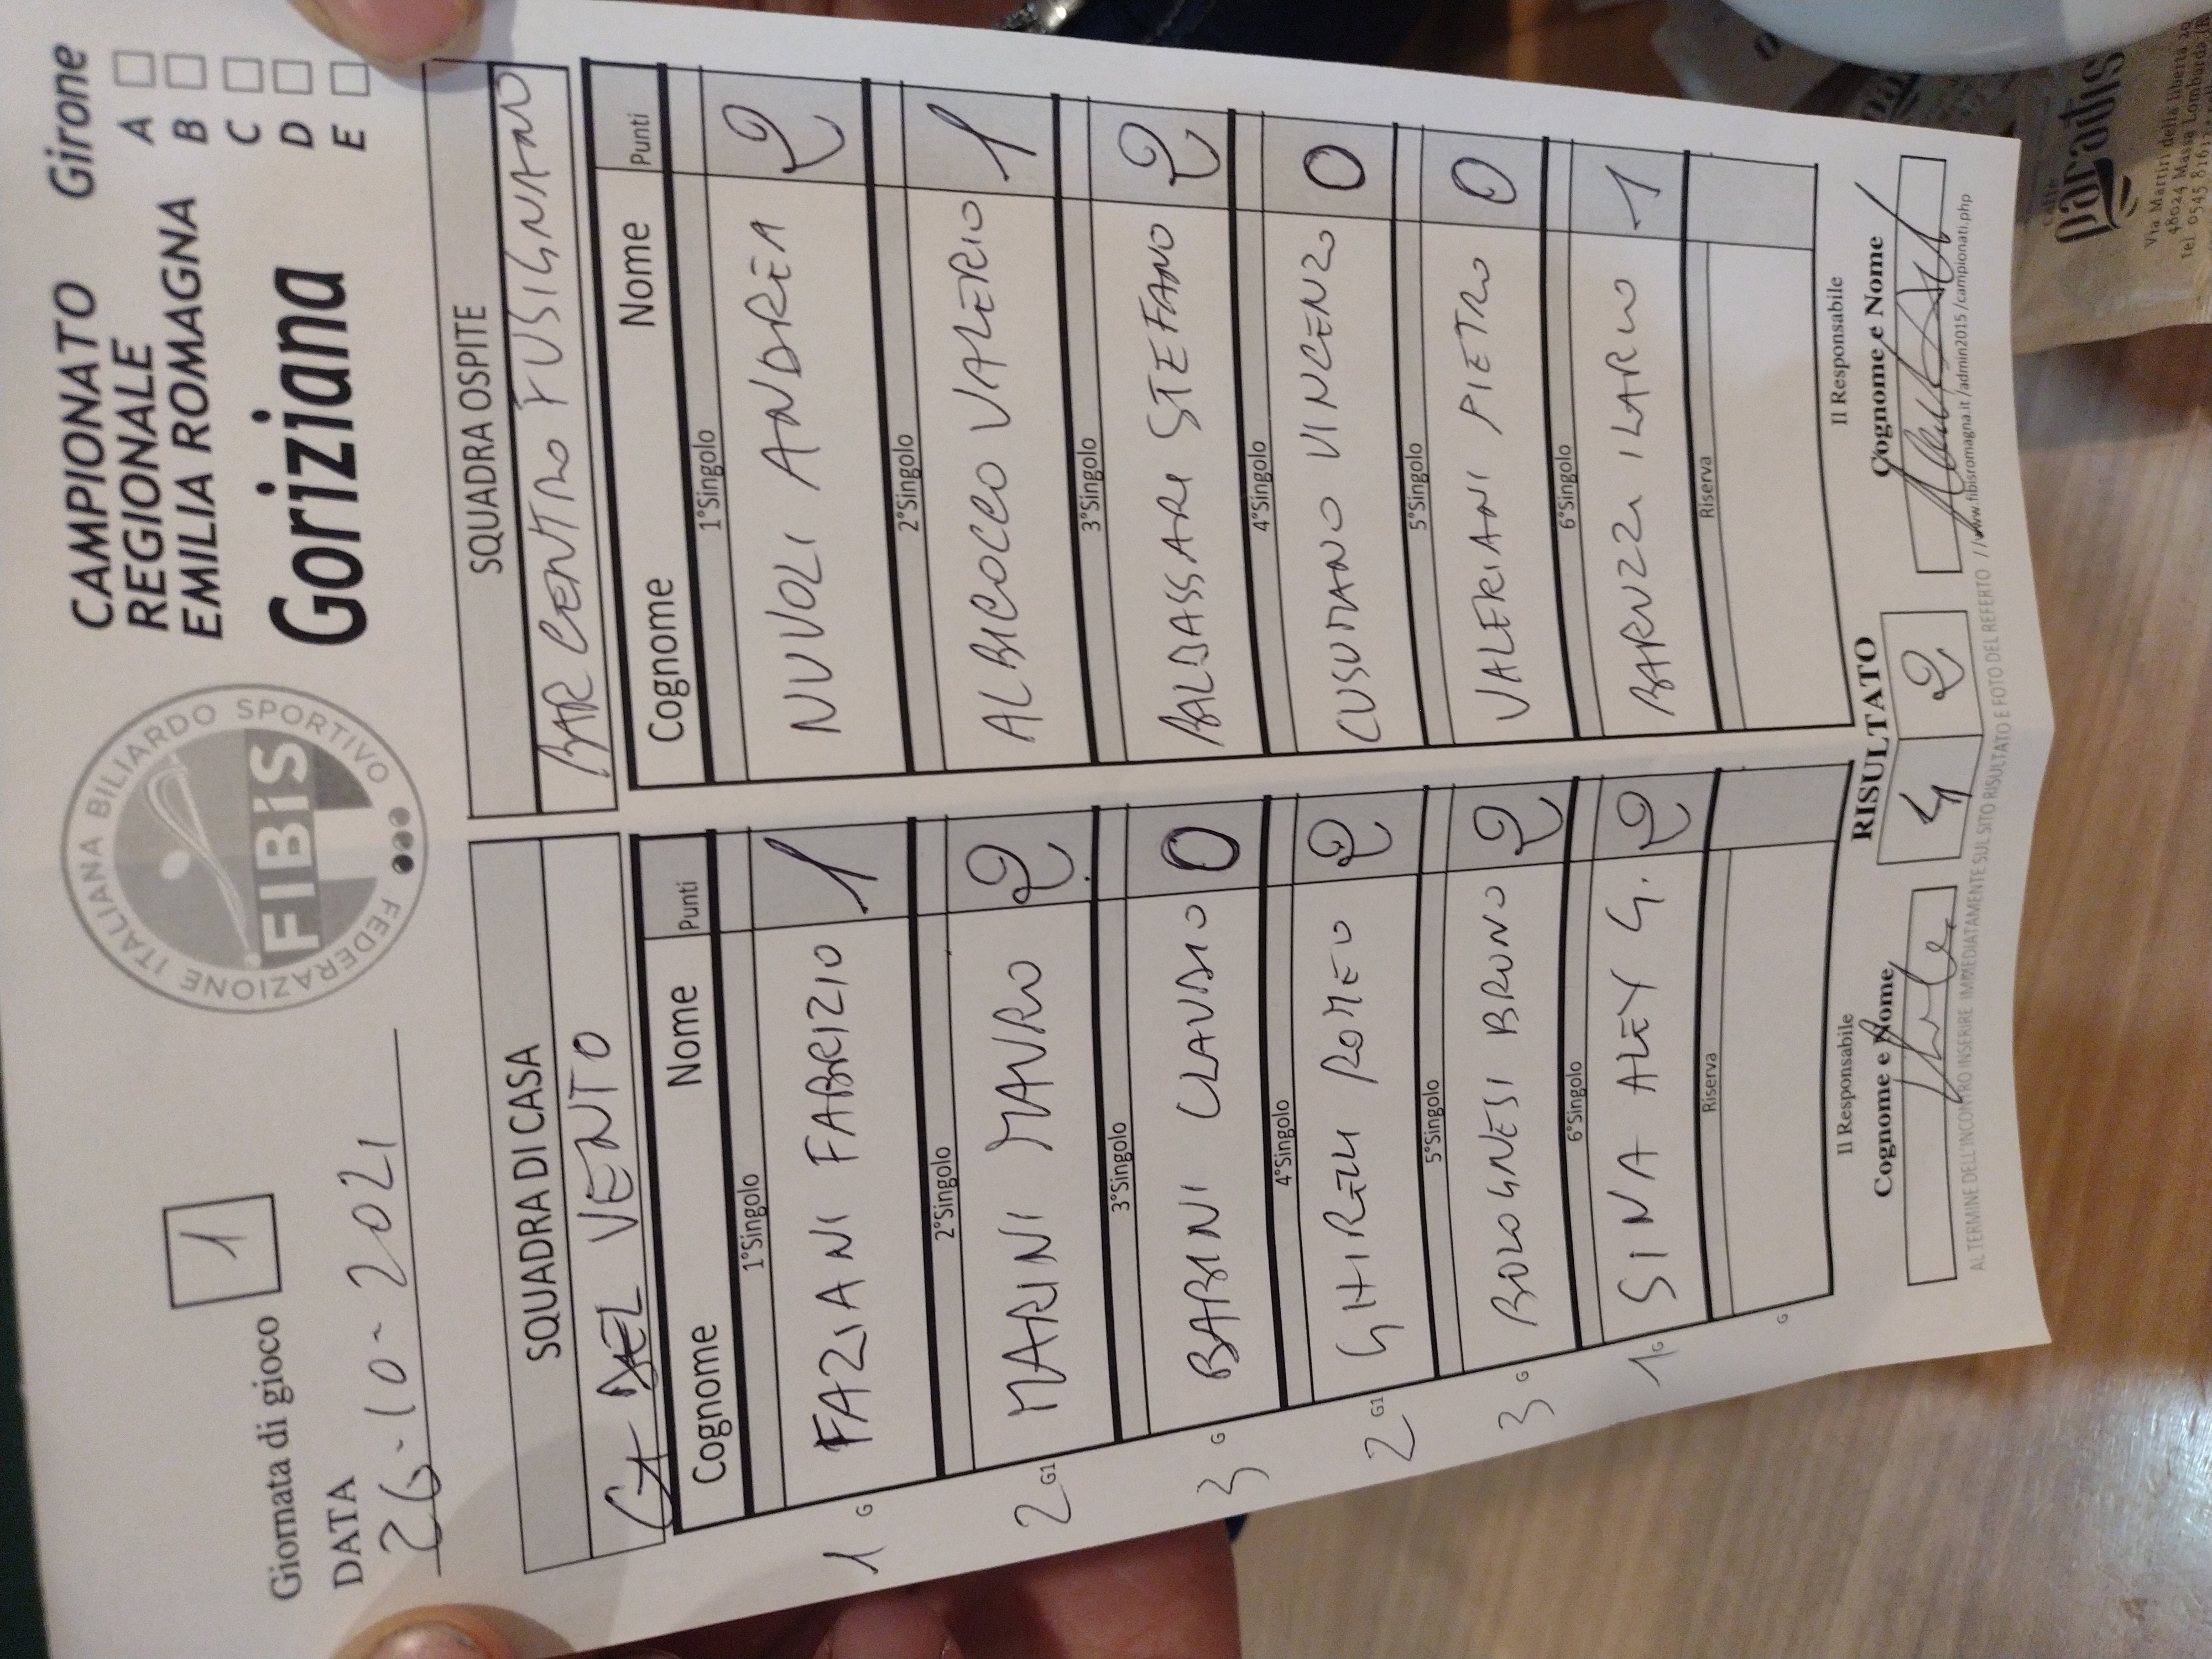 Giornata di gioco 1
DATA
26-10-2021
FEDERAZIONE ITALIANA BILIARDO SPORTIVO
FIBIS
CAMPIONATO
REGIONALE
EMILIA ROMAGNA
Goriziana
Girone
A
B
C
D
E
SQUADRA DI CASA SQUADRA OSPITE
DEL VENTO BAR CENTRO FUSIGNANO
Cognome Nome Punti Cognome Nome Punti
1°Singolo 1°Singolo
1 G FAZIANI FABRIZIO 1 NUVOLI ANDREA 2
2°Singolo 2°Singolo
2 G1 MARINI MAURO 2 ALBICOCCO VALERIO 1
3°Singolo 3°Singolo
3 G BABINI CLAUDIO 0 BALDASSARI STEFANO 2
4°Singolo 4°Singolo
2 G1 GHIRELLI ROMEO 2 CUSUMANO VINCENZO 0
5°Singolo 5°Singolo
3 G BOLOGNESI BRUNO 2 VALERIANI PIETRO 0
6°Singolo 6°Singolo
1 G SINA ALEY G. 2 BARUZZI ILARIO 1
Riserva Riserva
G
Il Responsabile RISULTATO Il Responsabile
Cognome e Nome 4 2 Cognome e Nome
AL TERMINE DELL'INCONTRO INSERIRE IMMEDIATAMENTE SUL SITO RISULTATO E FOTO DEL REFERTO //www.fibisromagna.it/admin2015/campionati.php
caffè
paradiso
Via Martiri della libertà
48024 Massa Lombarda
tel. 0545